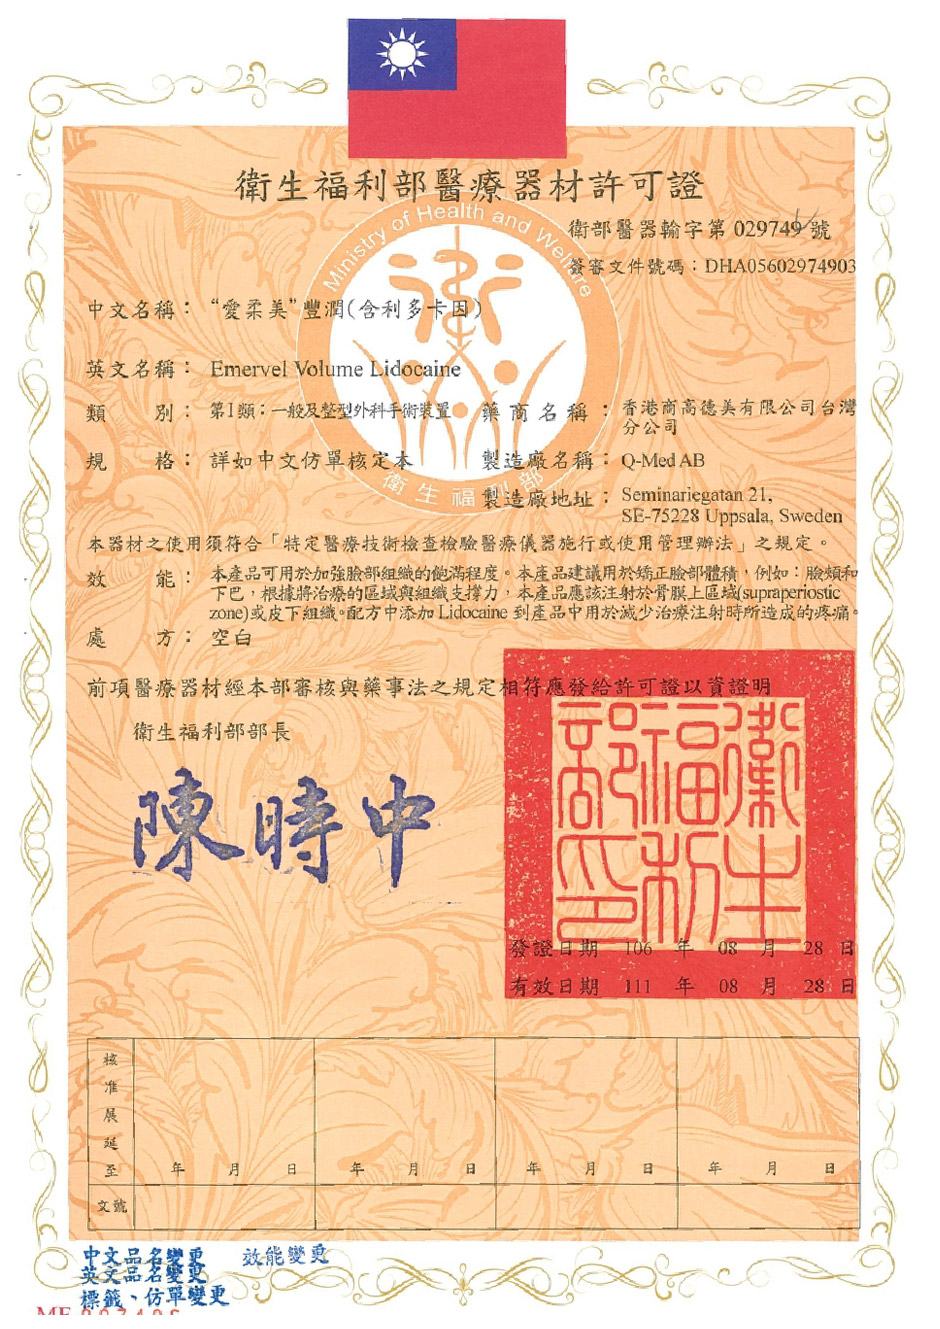 衛生福利部醫療器材許可證
衛部醫器輸字第 029749 號
簽審文件號碼：DHA05602974903
Ministry of Health and Welfare
中文名稱： “愛柔美”豐潤(含利多卡因)
英文名稱： Emervel Volume Lidocaine
類 別： 第I類：一般及整型外科手術裝置 藥商名稱： 香港商高德美有限公司台灣
分公司
規 格： 詳如中文仿單核定本 製造廠名稱： Q-Med AB
衛生福利部
製造廠地址： Seminariegatan 21,
SE-75228 Uppsala, Sweden
本器材之使用須符合「特定醫療技術檢查檢驗醫療儀器施行或使用管理辦法」之規定。
效 能： 本產品可用於加強臉部組織的飽滿程度。本產品建議用於矯正臉部體積，例如：臉頰和
下巴，根據將治療的區域與組織支撐力，本產品應該注射於骨膜上區域(supraperiostic
zone)或皮下組織。配方中添加 Lidocaine 到產品中用於減少治療注射時所造成的疼痛。
處 方： 空白
前項醫療器材經本部審核與藥事法之規定相符應發給許可證以資證明
衛生福利部部長
陳時中
衛生福利部印
發證日期 106 年 08 月 28 日
有效日期 111 年 08 月 28 日
核准展延至 年 月 日 年 月 日 年 月 日 年 月 日
文號
中文品名變更 效能變更
英文品名變更
標籤、仿單變更